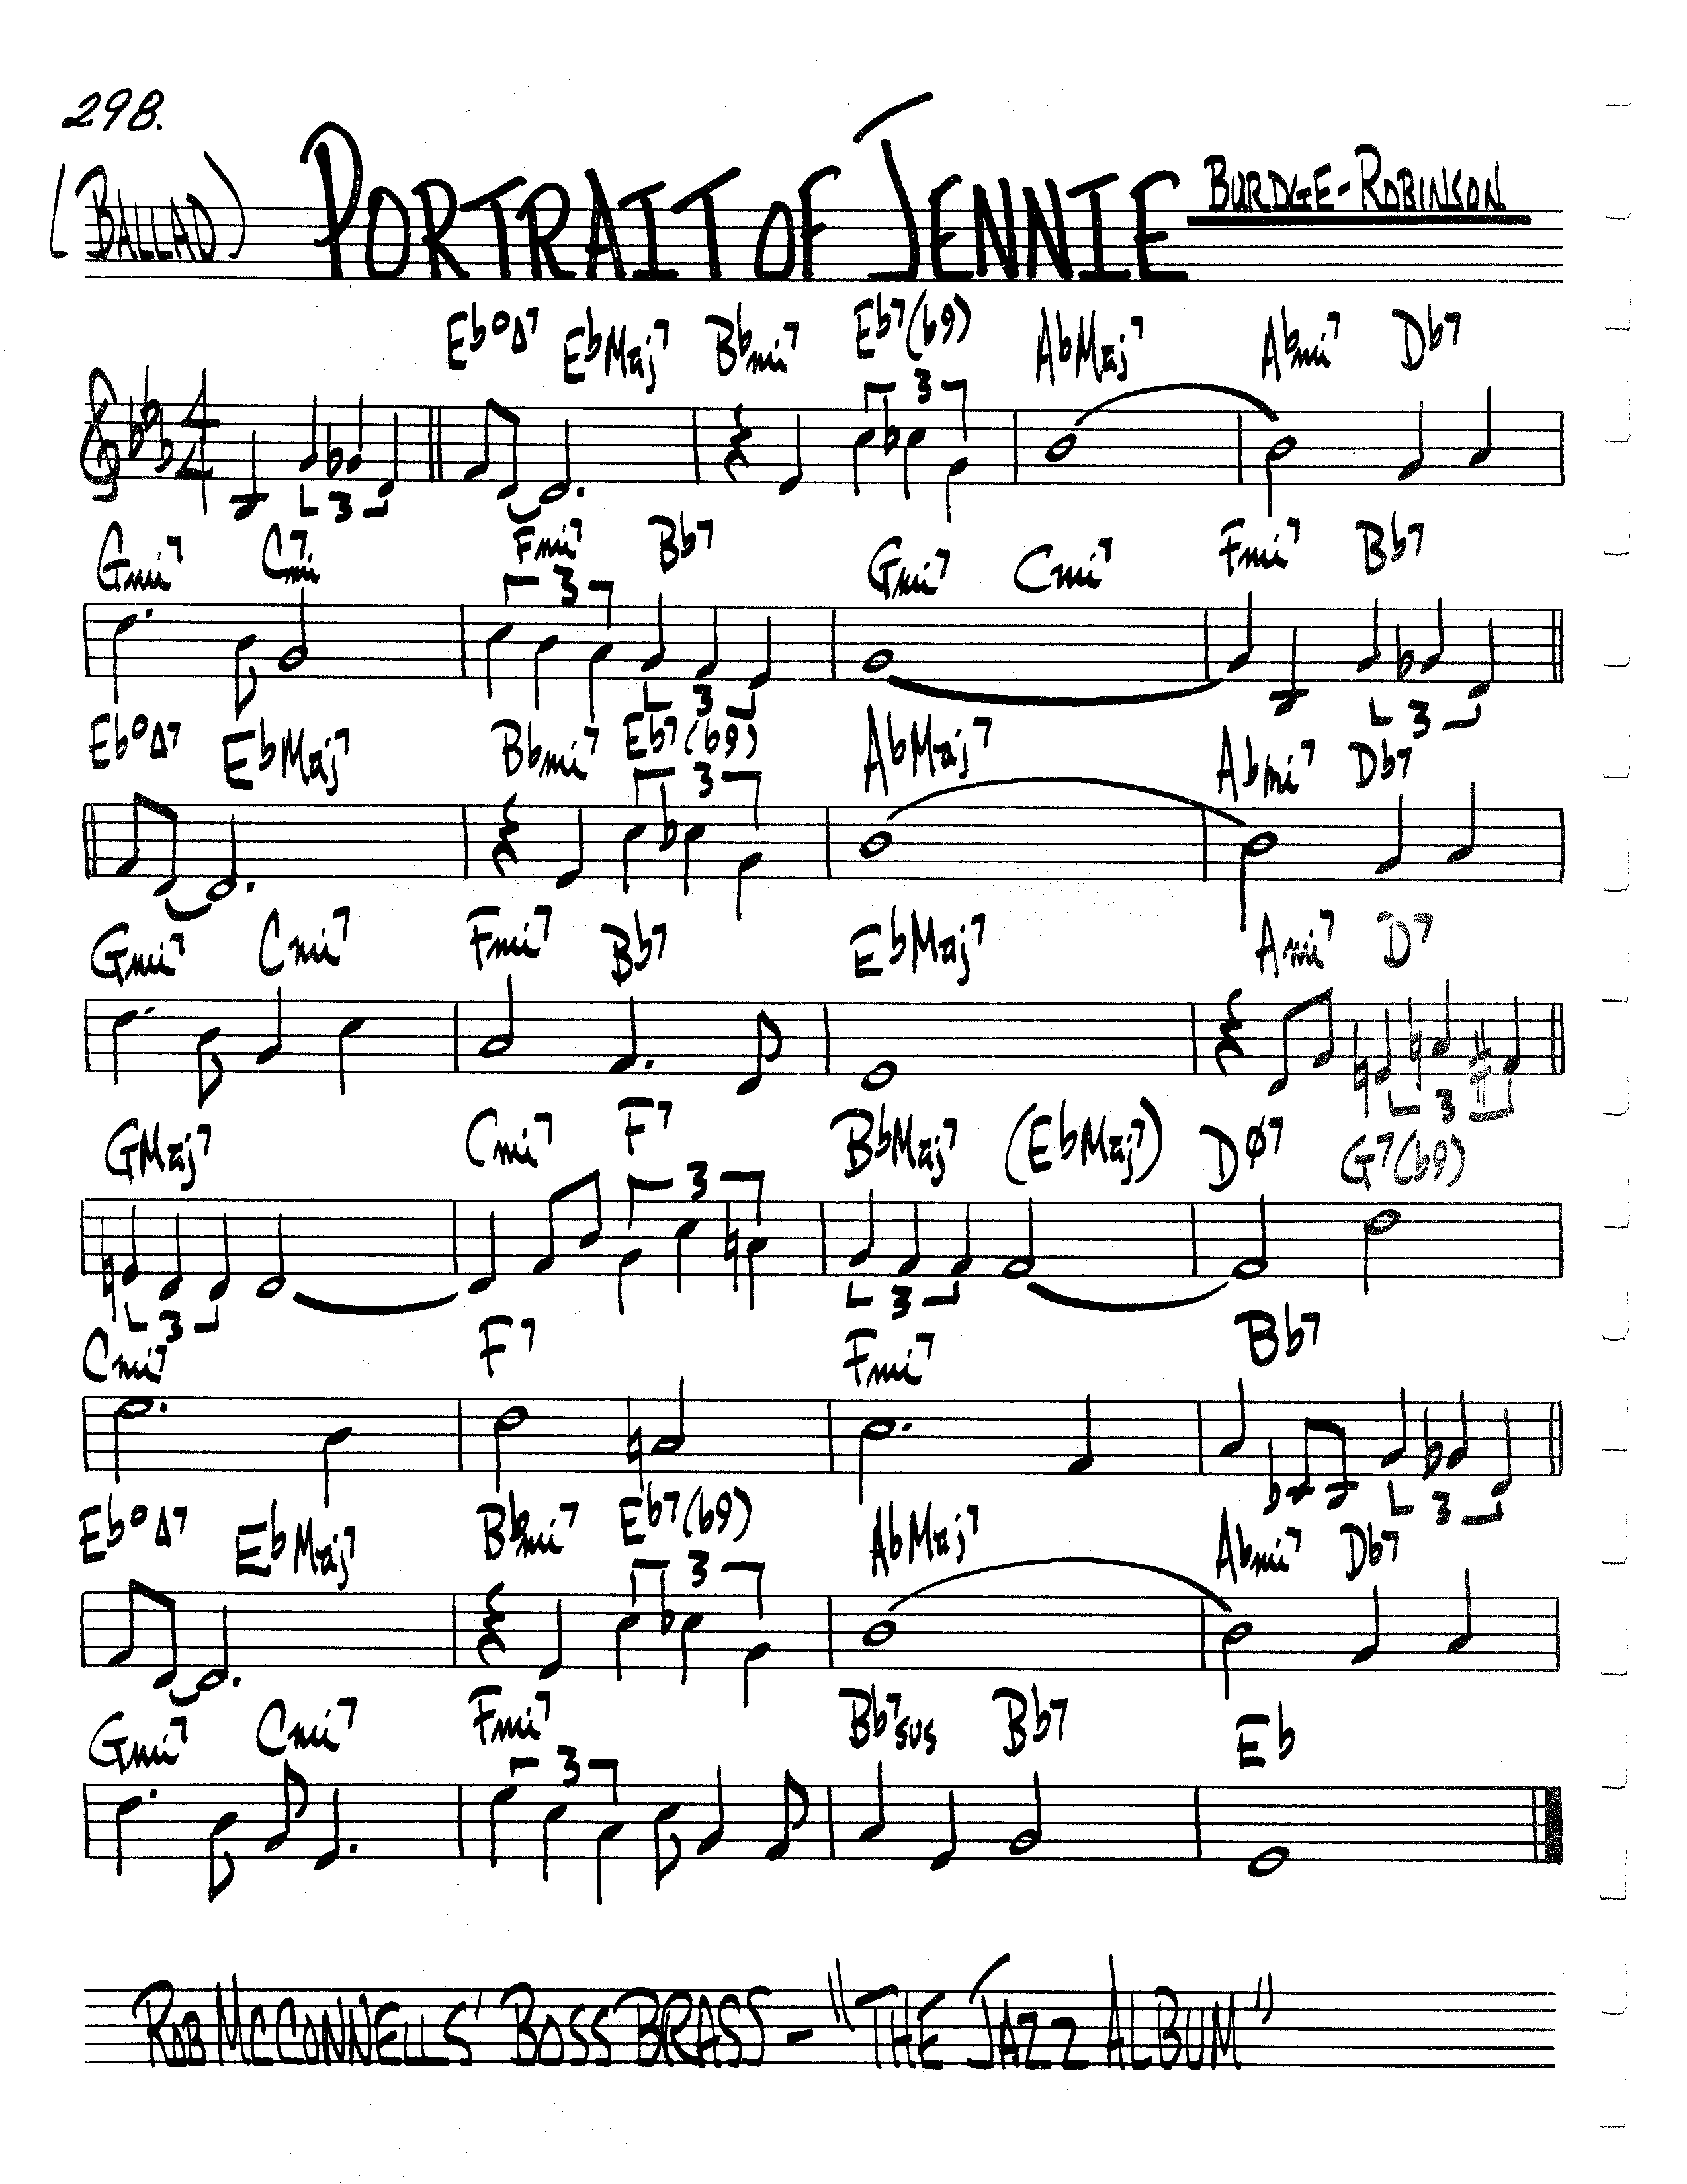 298.
(BALLAD) PORTRAIT OF JENNIE BURDGE-ROBINSON
Eb°Δ7 EbMaj7 Bbmi7 Eb7(b9) AbMaj7 Abmi7 Db7
3
4
4
3
Gmi7 Cmi7 Fmi7 Bb7 Gmi7 Cmi7 Fmi7 Bb7
3
3 3
Eb°Δ7 EbMaj7 Bbmi7 Eb7(b9) AbMaj7 Abmi7 Db7
3
Gmi7 Cmi7 Fmi7 Bb7 EbMaj7 Ami7 D7
3
GMaj7 Cmi7 F7 BbMaj7 (EbMaj7) DØ7 G7(b9)
3
3 3
Cmi7 F7 Fmi7 Bb7
3
Eb°Δ7 EbMaj7 Bbmi7 Eb7(b9) AbMaj7 Abmi7 Db7
3
Gmi7 Cmi7 Fmi7 Bb7sus Bb7 Eb
3
ROB MCCONNELLS' BOSS BRASS - "THE JAZZ ALBUM"